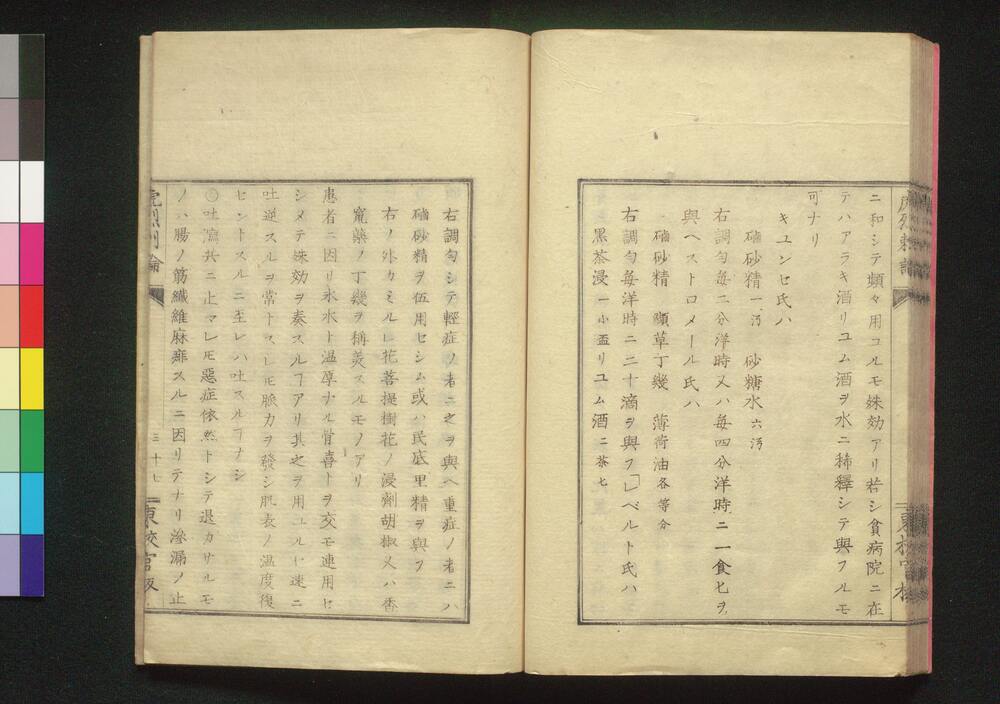 ニ和シテ頻々用コルモ殊効アリ若シ貧病院ニ在
テハアラキ酒リユム酒ヲ水ニ稀釋シテ與フルモ
可ナリ
キユンセ氏ハ
硇砂精一汚 砂糖水六汚
右調匀毎二分洋時又ハ毎四分洋時ニ一食匕ヲ
與ヘストロメール氏ハ
硇砂精 纈草丁幾 薄荷油各等分
右調匀毎洋時ニ二十滴ヲ與フ「レベルト氏ハ
黒茶浸一小盃リユム酒ニ茶匕
右調匀シテ輕症ノ者ニ之ヲ與ヘ重症ノ者ニハ
硇砂精ヲ伍用セシム或ハ民底里精ヲ與フ
右ノ外カミルレ花菩提樹花ノ浸劑胡椒又ハ香
竄藥ノ丁幾ヲ稱美スルモノアリ
患者ニ因リ氷水ト温厚ナル骨喜トヲ交モ連用セ
シメテ殊効ヲ奏スルヿアリ其之ヲ用ユルヤ速ニ
吐逆スルヲ常トスレ𪜈脈力ヲ發シ肌表ノ温度復
セントスルニ至レハ吐スルヿナシ
○吐瀉共ニ止マレ𪜈惡症依然トシテ退カサルモ
ノハ腸ノ筋纖維麻痺スルニ因リテナリ滲漏ノ止
虎烈剌論
三十七
東校官版